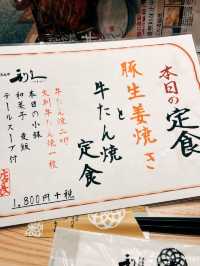 本日の定食
豚生姜焼き
と
牛たん焼
定食
牛たん焼二切
文判牛たん焼一枚
本日の小鉢
和菓子 麦飯
テールスープ付
1,800円+税